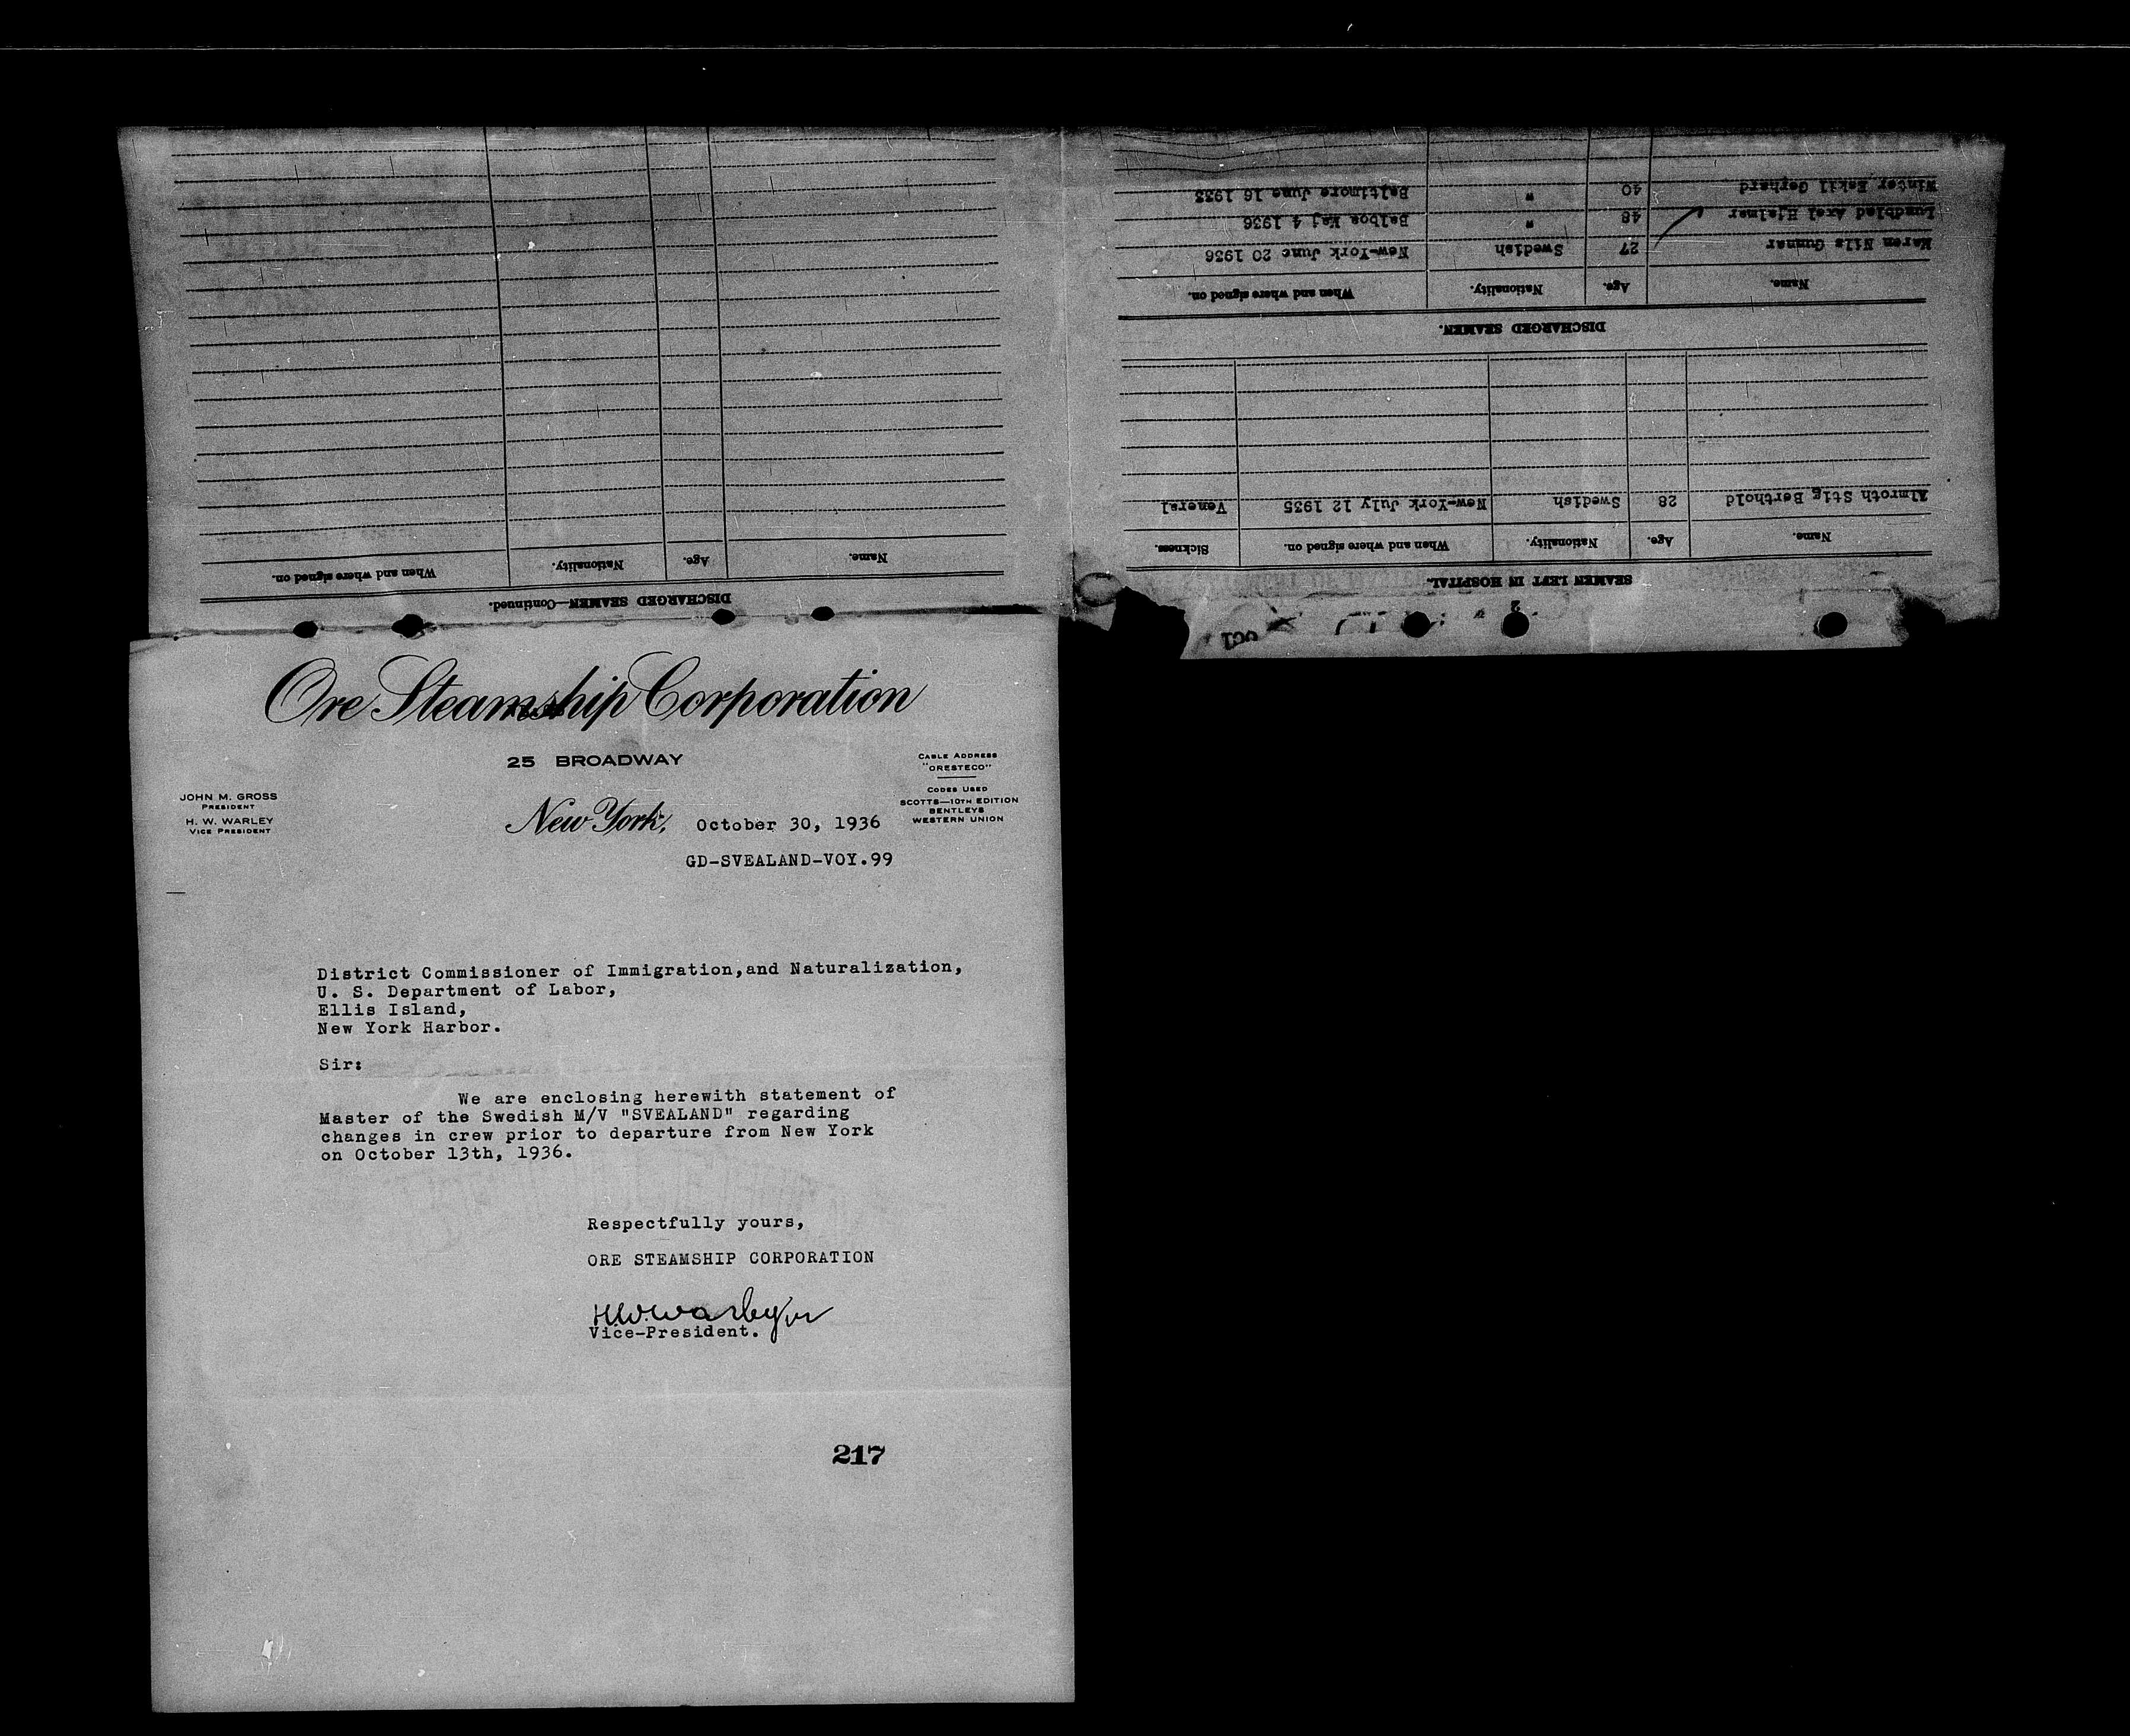 DISCHARGED SEAMEN—Continued.
Name. Age. Nationality. When and where signed on.
2
SEAMEN LEFT IN HOSPITAL.
Name. Age. Nationality. When and where signed on. Sickness.
Almroth Stig Berthold 28 Swedish New-York July 12 1935 Veneral
DISCHARGED SEAMEN.
Name. Age. Nationality. When and where signed on.
Maren Nils Gunnar 27 Swedish New-York June 20 1936
Lundblad Axel Hjalmar 48 " Balboa Maj 4 1936
Winter Eskil Gerhard 40 " Baltimore June 16 1933
Ore Steamship Corporation
25 BROADWAY
CABLE ADDRESS
"ORESTECO"
CODES USED
SCOTTS—10TH EDITION
BENTLEYS
WESTERN UNION
JOHN M. GROSS
PRESIDENT
H. W. WARLEY
VICE PRESIDENT
New York, October 30, 1936
GD-SVEALAND-VOY.99
District Commissioner of Immigration,and Naturalization,
U. S. Department of Labor,
Ellis Island,
New York Harbor.
Sir:
We are enclosing herewith statement of
Master of the Swedish M/V "SVEALAND" regarding
changes in crew prior to departure from New York
on October 13th, 1936.
Respectfully yours,
ORE STEAMSHIP CORPORATION
H.W.Warley
Vice-President.
217